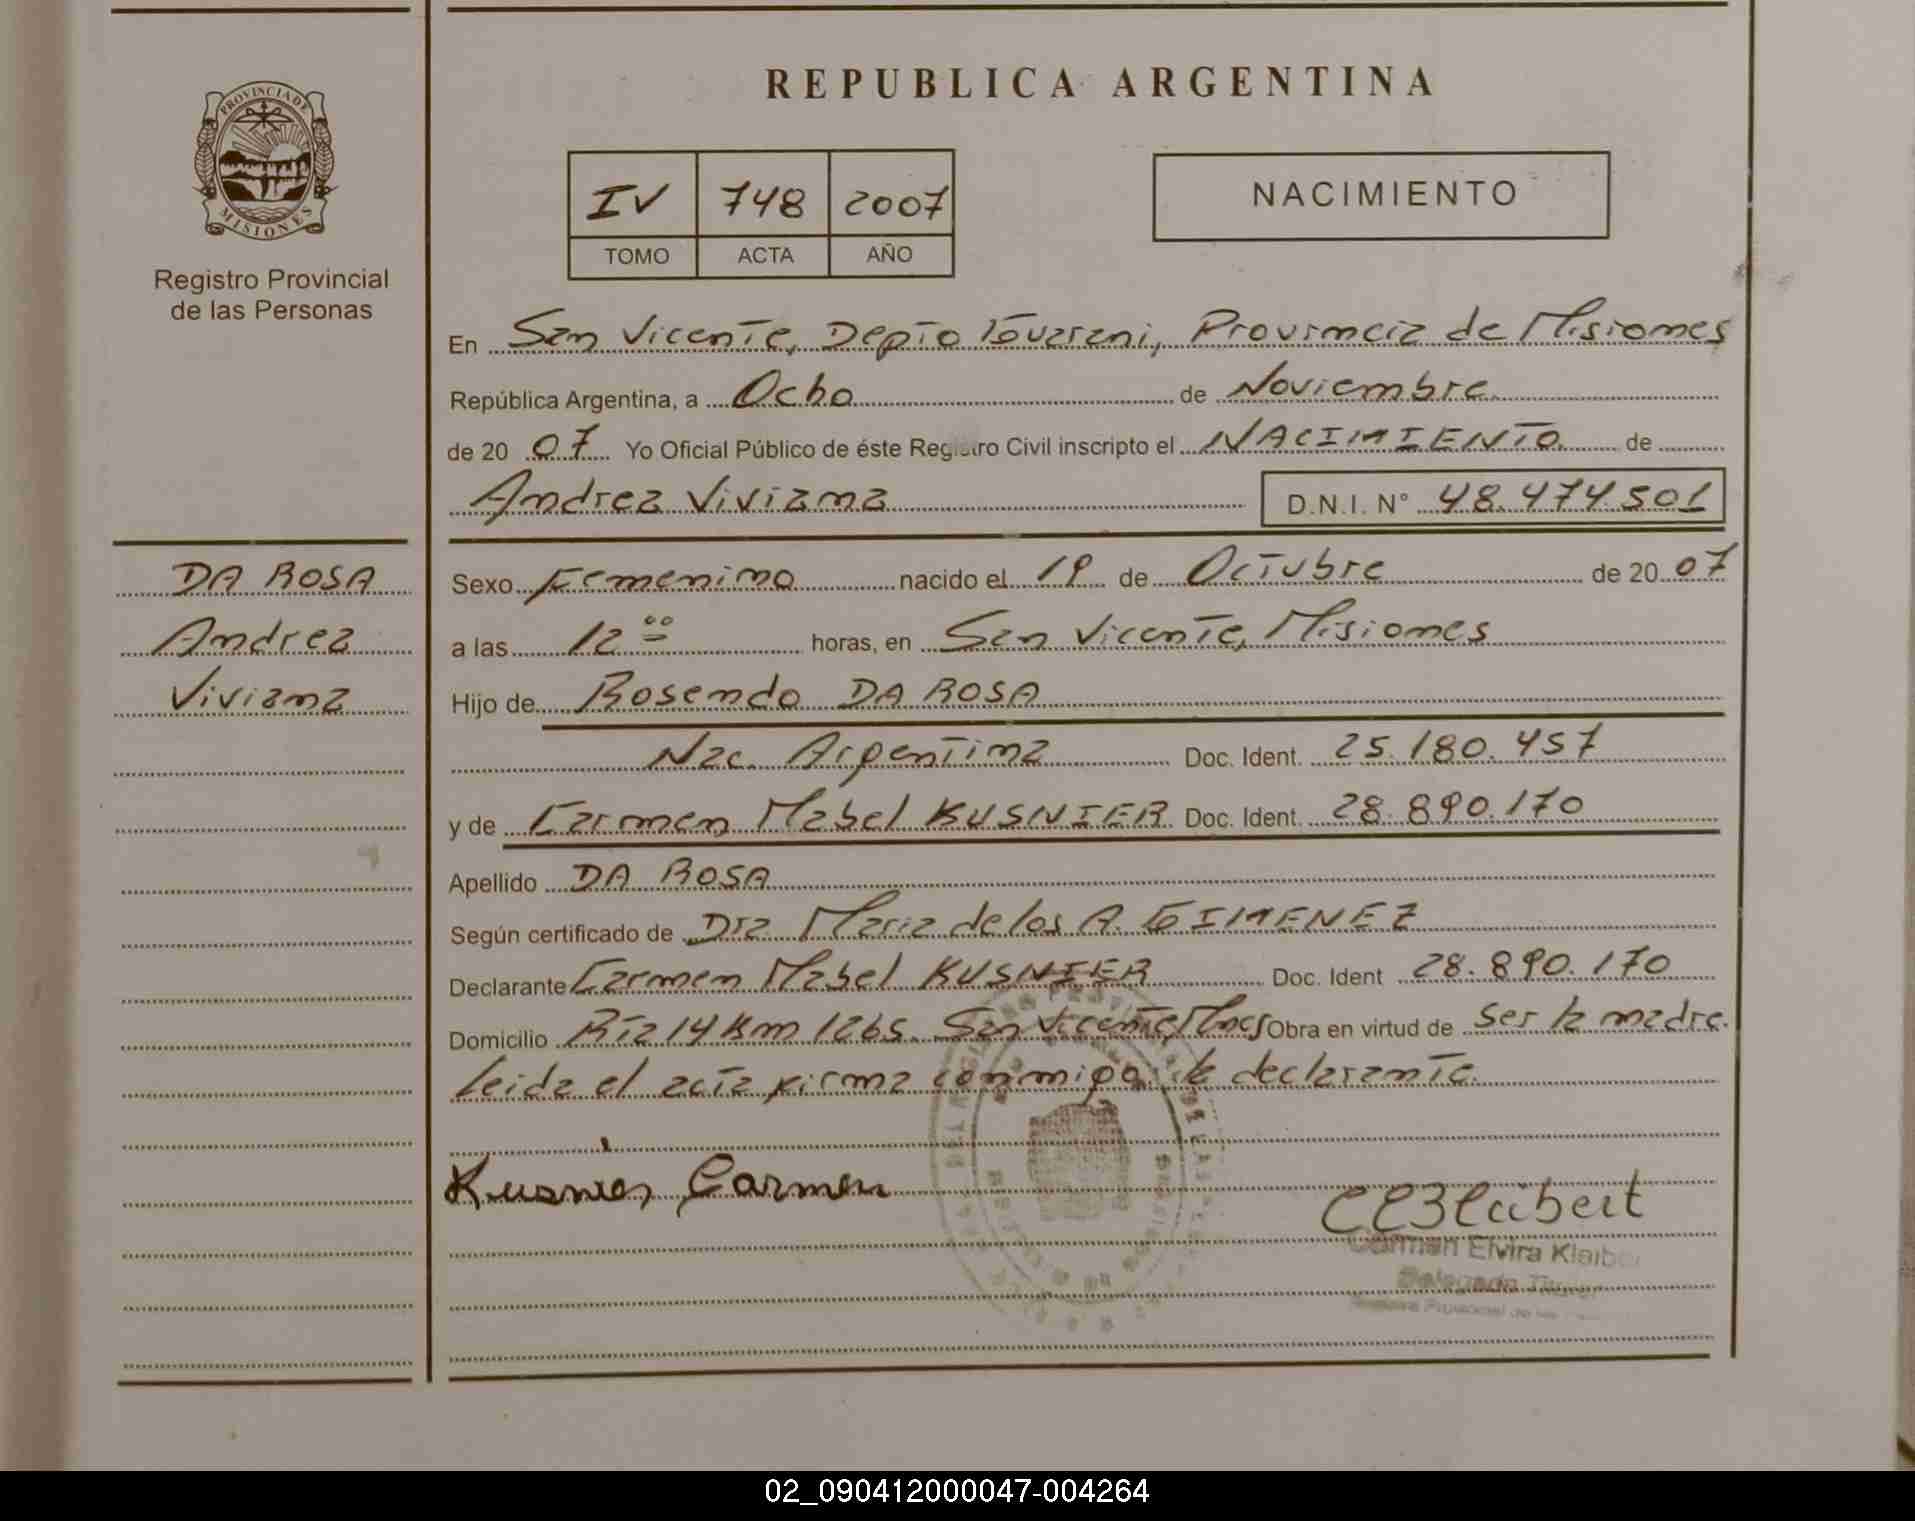 REPUBLICA ARGENTINA
PROVINCIA DE
MISIONES
Registro Provincial
de las Personas
IV 748 2007
TOMO ACTA AÑO
NACIMIENTO
En San Vicente, Depto Guarani, Provincia de Misiones
República Argentina, a Ocho de Noviembre
de 20 07 Yo Oficial Público de éste Registro Civil inscripto el NACIMIENTO de
Andrea Viviana D.N.I. N° 48.474.501
DA ROSA
Andrea
Viviana
Sexo Femenino nacido el 19 de Octubre de 20 07
a las 12 00 horas, en San Vicente, Misiones
Hijo de Rosendo DA ROSA
Nac. Argentina Doc. Ident. 25.180.457
y de Carmen Mabel KUSNIER Doc. Ident. 28.890.170
Apellido DA ROSA
Según certificado de Dra Maria de los A. GIMENEZ
Declarante Carmen Mabel KUSNIER Doc. Ident 28.890.170
Domicilio Rta 14 Km 1265. San Vicente, Mnes Obra en virtud de ser la madre.
Leida el acta firma conmigo la declarante.
Kusnier Carmen
Carmen Elvira Klaiber
Delegada Titular
02_090412000047-004264